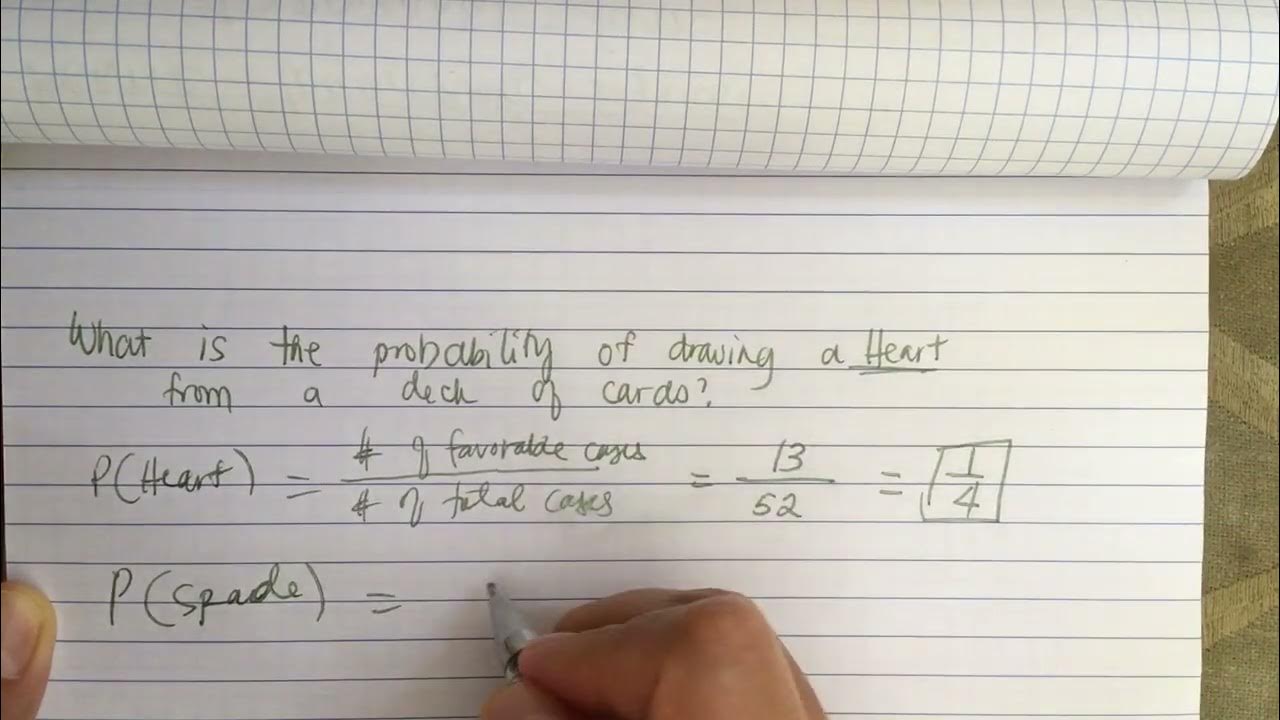 What is the probability of drawing a Heart
from a deck of cards?
P(Heart) = # of favorable cases / # of total cases = 13/52 = 1/4
P(spade) =